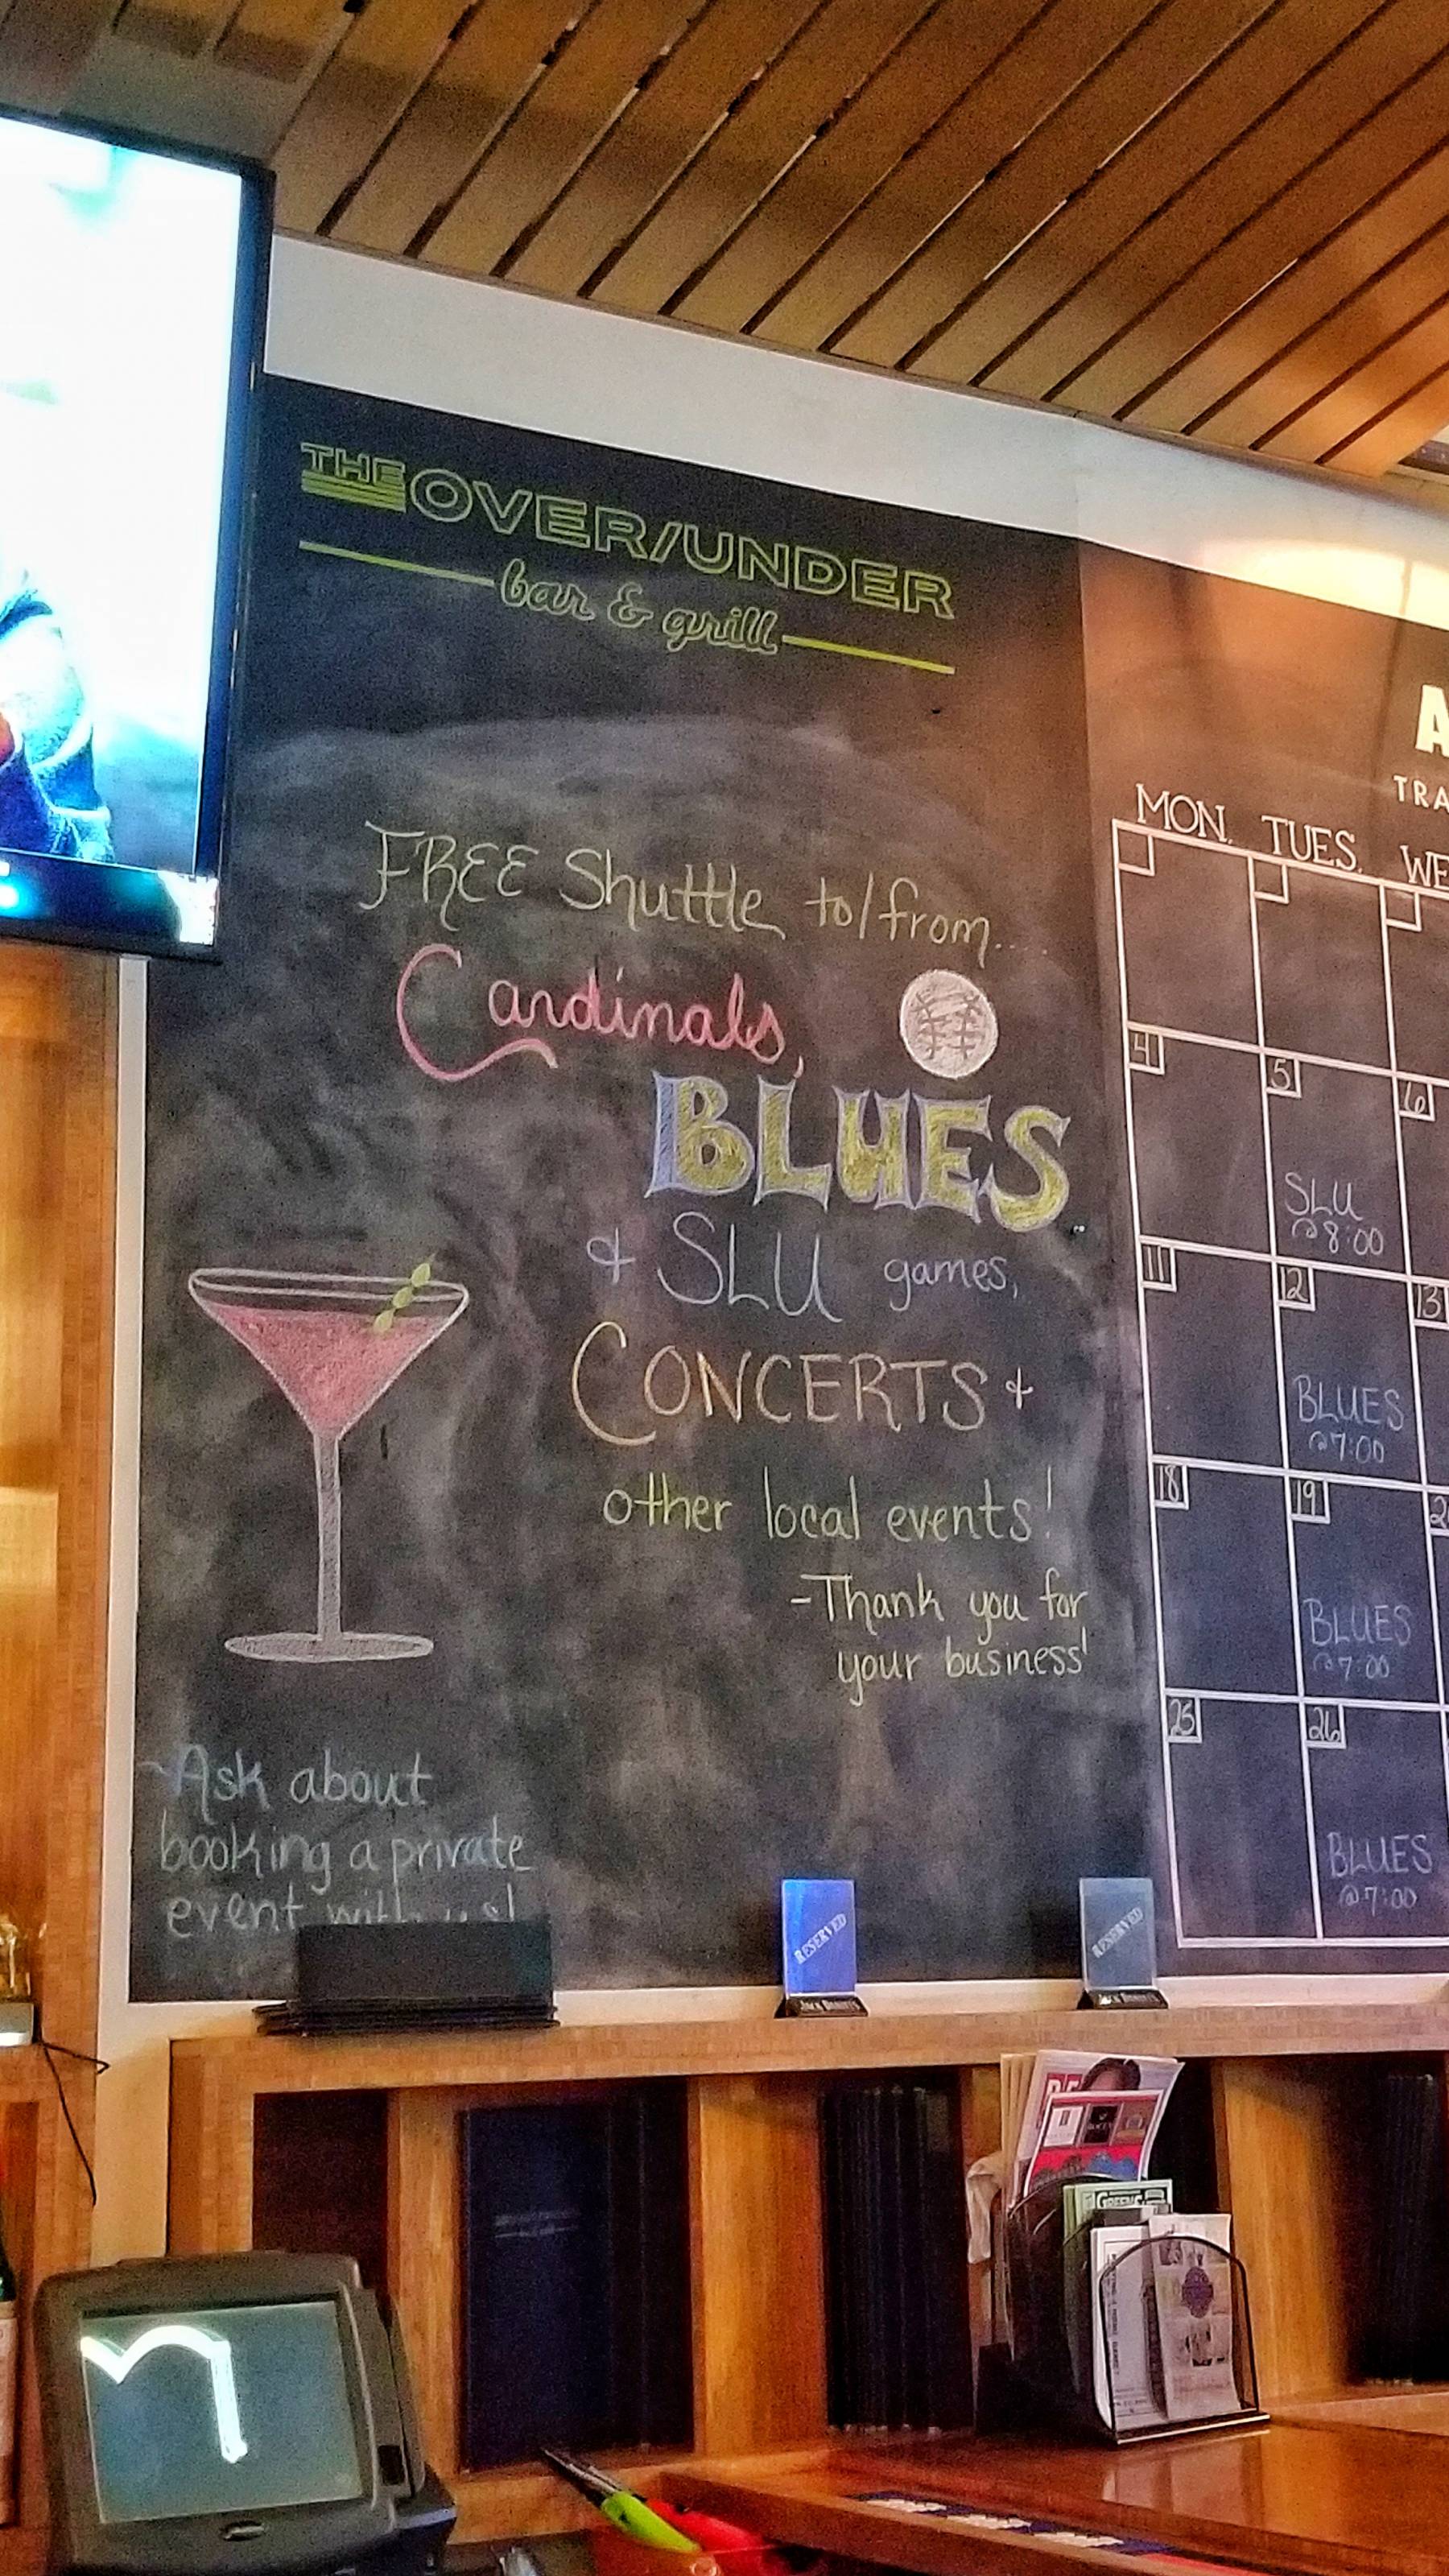 THE OVER/UNDER
bar & grill
FREE Shuttle to/from....
Cardinals,
BLUES
& SLU games,
CONCERTS &
other local events!
-Thank you for
your business!
~Ask about
booking a private
event with us!
A
TRA
MON. TUES. WE
4 5 6
SLU
@8:00
11 12 13
BLUES
@7:00
18 19 2
BLUES
@7:00
25 26
BLUES
@7:00
RESERVED
RESERVED